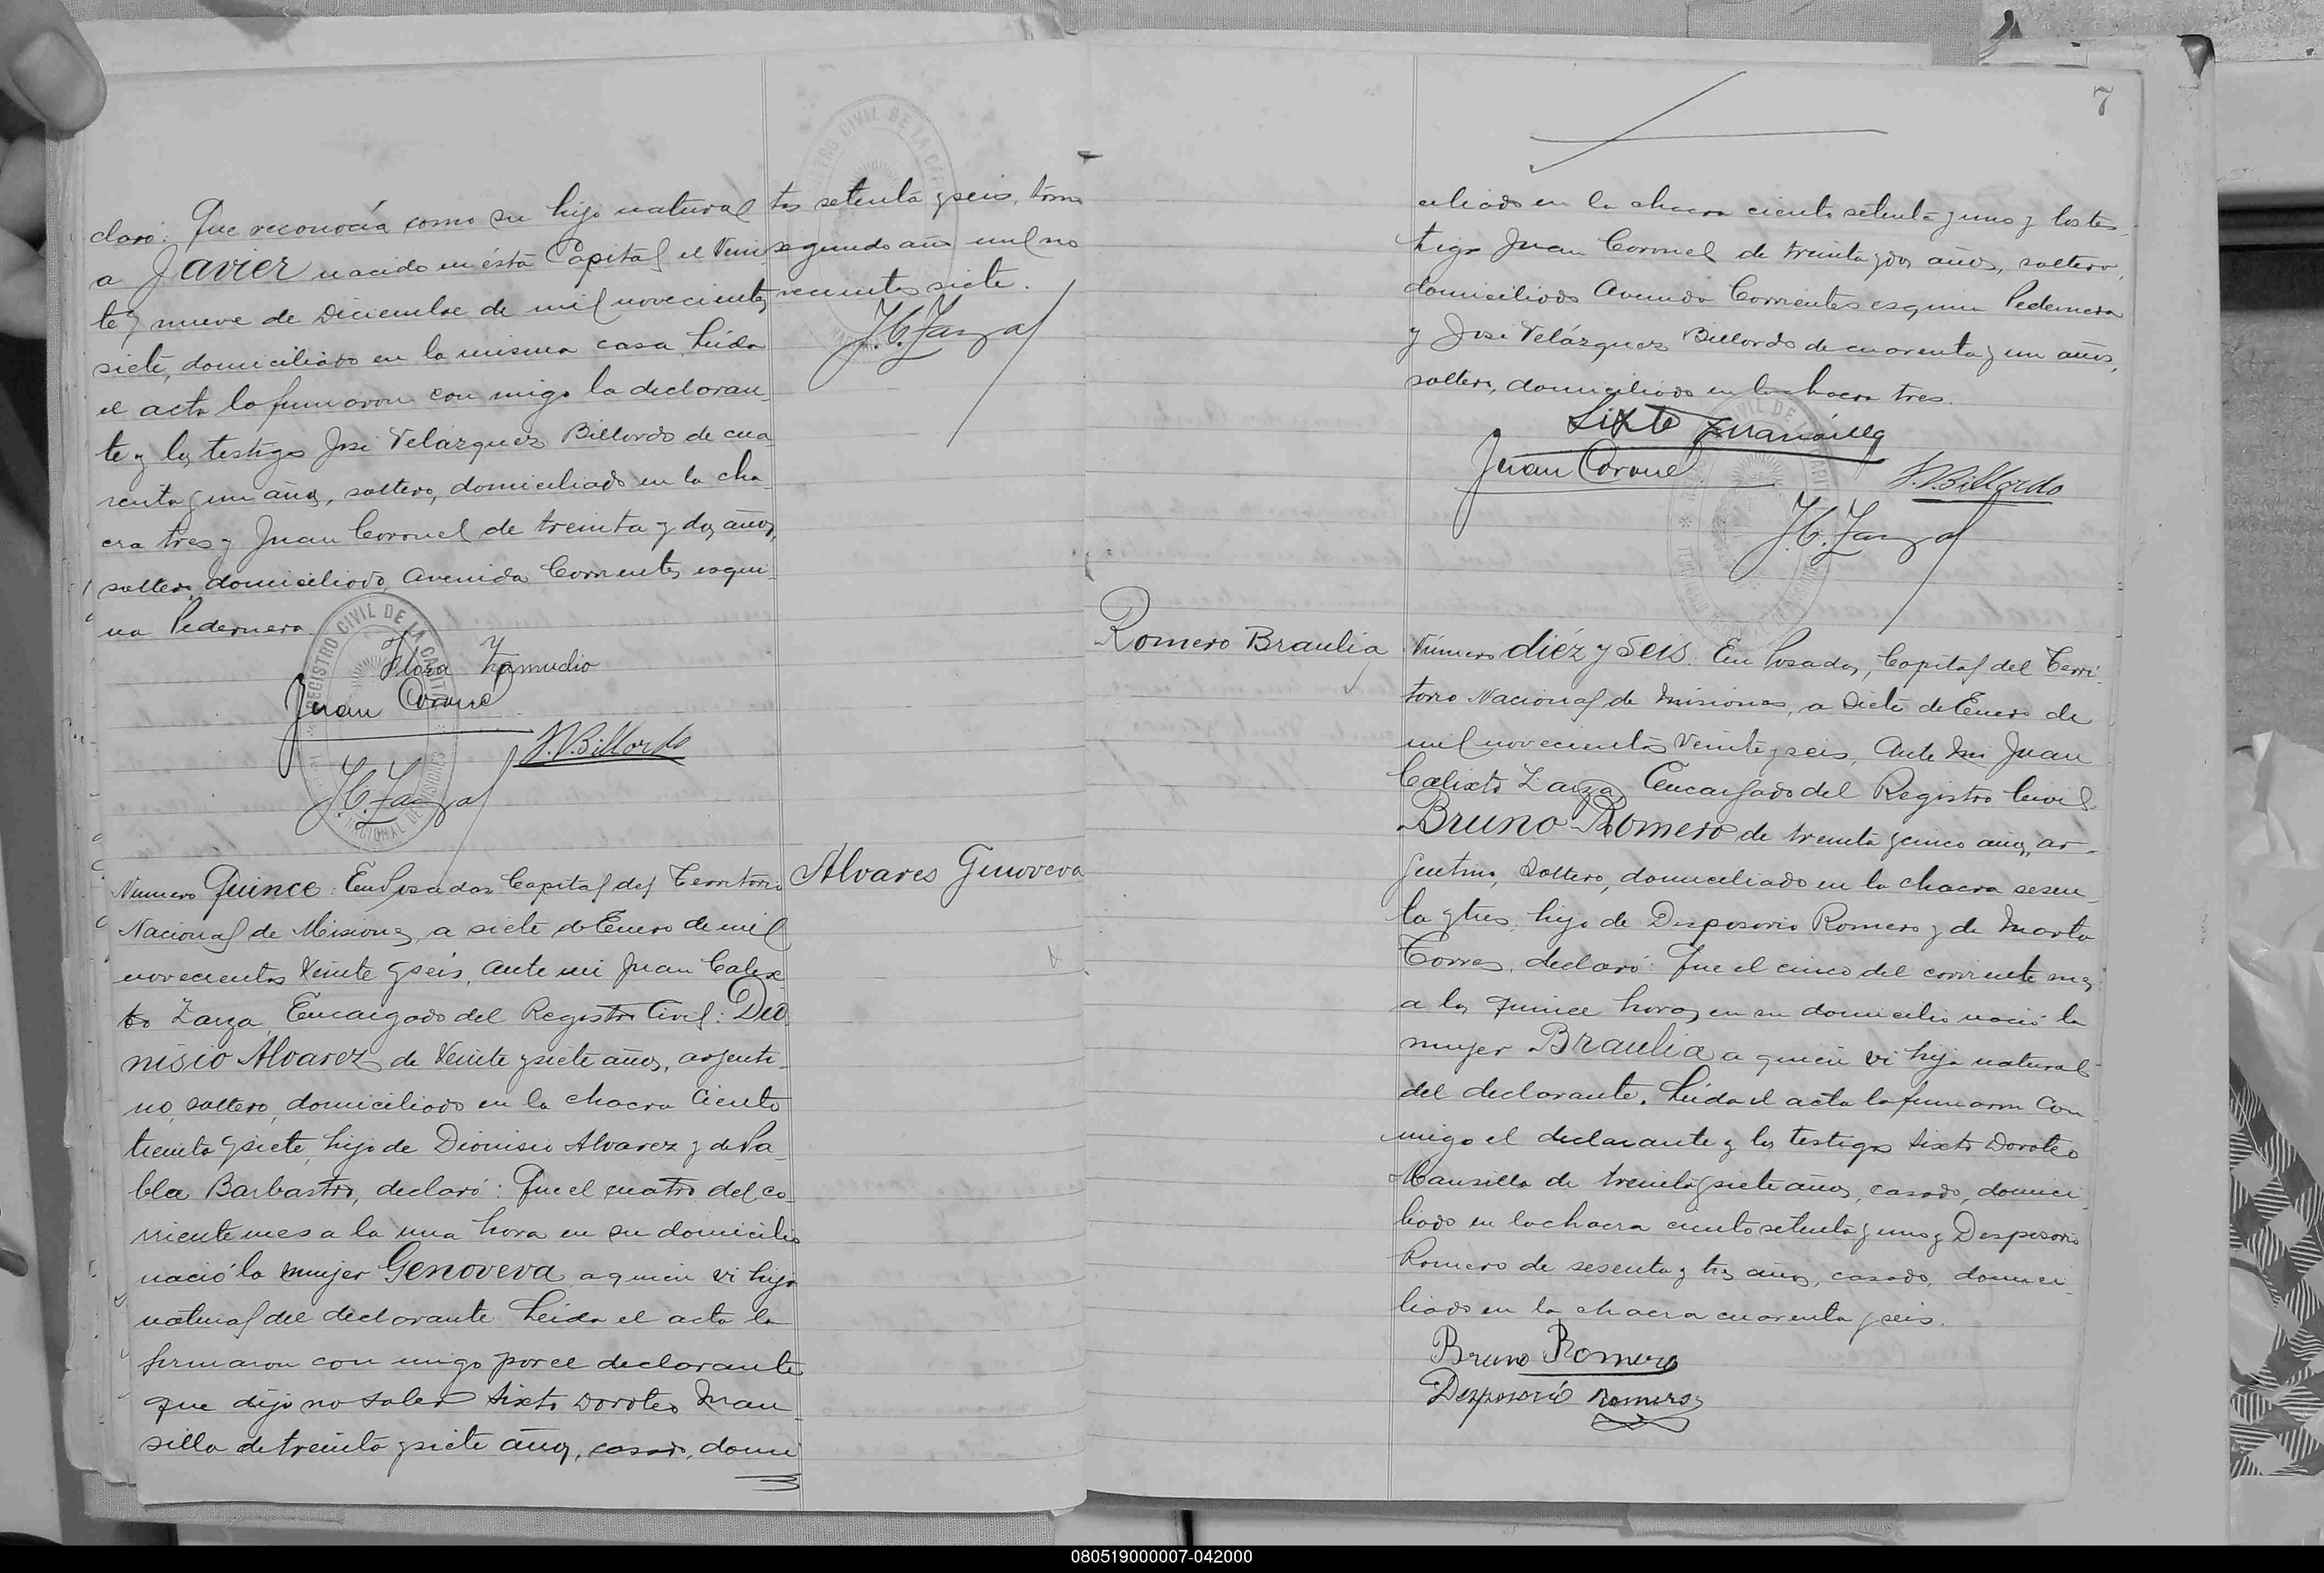 claró: Que reconocía como su hijo natural
a Javier nacido en ésta Capital el Vein
te y nueve de Diciembre de mil novecientos
siete, domiciliado en la misma casa. Leída
el acta la firmaron con migo la declaran
te y los testigos José Velazquez Billordo de cua
renta y un años, soltero, domiciliado en la cha
cra tres y Juan Coronel de treinta y dos años,
soltero, domiciliado Avenida Corrientes esqui
na Pedernera.
tos setenta y seis, tomo
segundo año mil no
vecientos siete.
J.C. Zarza
REGISTRO CIVIL DE LA CAPITAL
Flora Zamudio
Juan Coronel
J.V. Billordo
J.C. Zarza
Alvares Genoveva
Número Quince: En Posadas Capital del Territorio
Nacional de Misiones, a siete de Enero de mil
novecientos veinte y seis, ante mi Juan Calix
to Zarza, Encargado del Registro Civil: Dio
nisio Alvarez de veinte y siete años, argenti
no, soltero, domiciliado en la chacra ciento
treinta y siete, hijo de Dionisio Alvarez y de Pa
bla Barbastro, declaró: Que el cuatro del co
rriente mes a la una hora en su domicilio
nació la mujer Genoveva, a quien vi hija
natural del declarante. Leida el acta la
firmaron con migo por el declarante
que dijo no saber Sixto Doroteo Man
silla de treinta y siete años, casado, domi
7
ciliado en la chacra ciento setenta y uno y los tes
tigo Juan Coronel de treinta y dos años, soltero,
domiciliado Avenida Corrientes esquina Pedernera
y José Velázquez Billordo de cuarenta y un años,
soltero, domiciliado en la chacra tres.
Sixto Mansilla
Juan Coronel
J.V. Billordo
J.C. Zarza
Romero Braulia
Número diéz y Seis: En Posadas, Capital del Terri
torio Nacional de Misiones, a siete de Enero de
mil novecientos veinte y seis, Ante Mi Juan
Calixto Zarza, Encargado del Registro Civil
Bruno Romero de treinta y cinco años, ar
gentino, soltero, domiciliado en la chacra sesen
ta y tres, hijo de Desposorio Romero y de Marta
Torres, declaró: Que el cinco del corriente mes
a las quince horas en su domicilio nació la
mujer Braulia a quien vi hija natural
del declarante. Leida el acta la firmaron con
migo el declarante y los testigos Sixto Doroteo
Mansilla de treinta y siete años, casado, domici
liado en la chacra ciento setenta y uno y Desposorio
Romero de sesenta y tres años, casado, domici
liado en la chacra cuarenta y seis.
Bruno Romero
Desposorio Romero
080519000007-042000